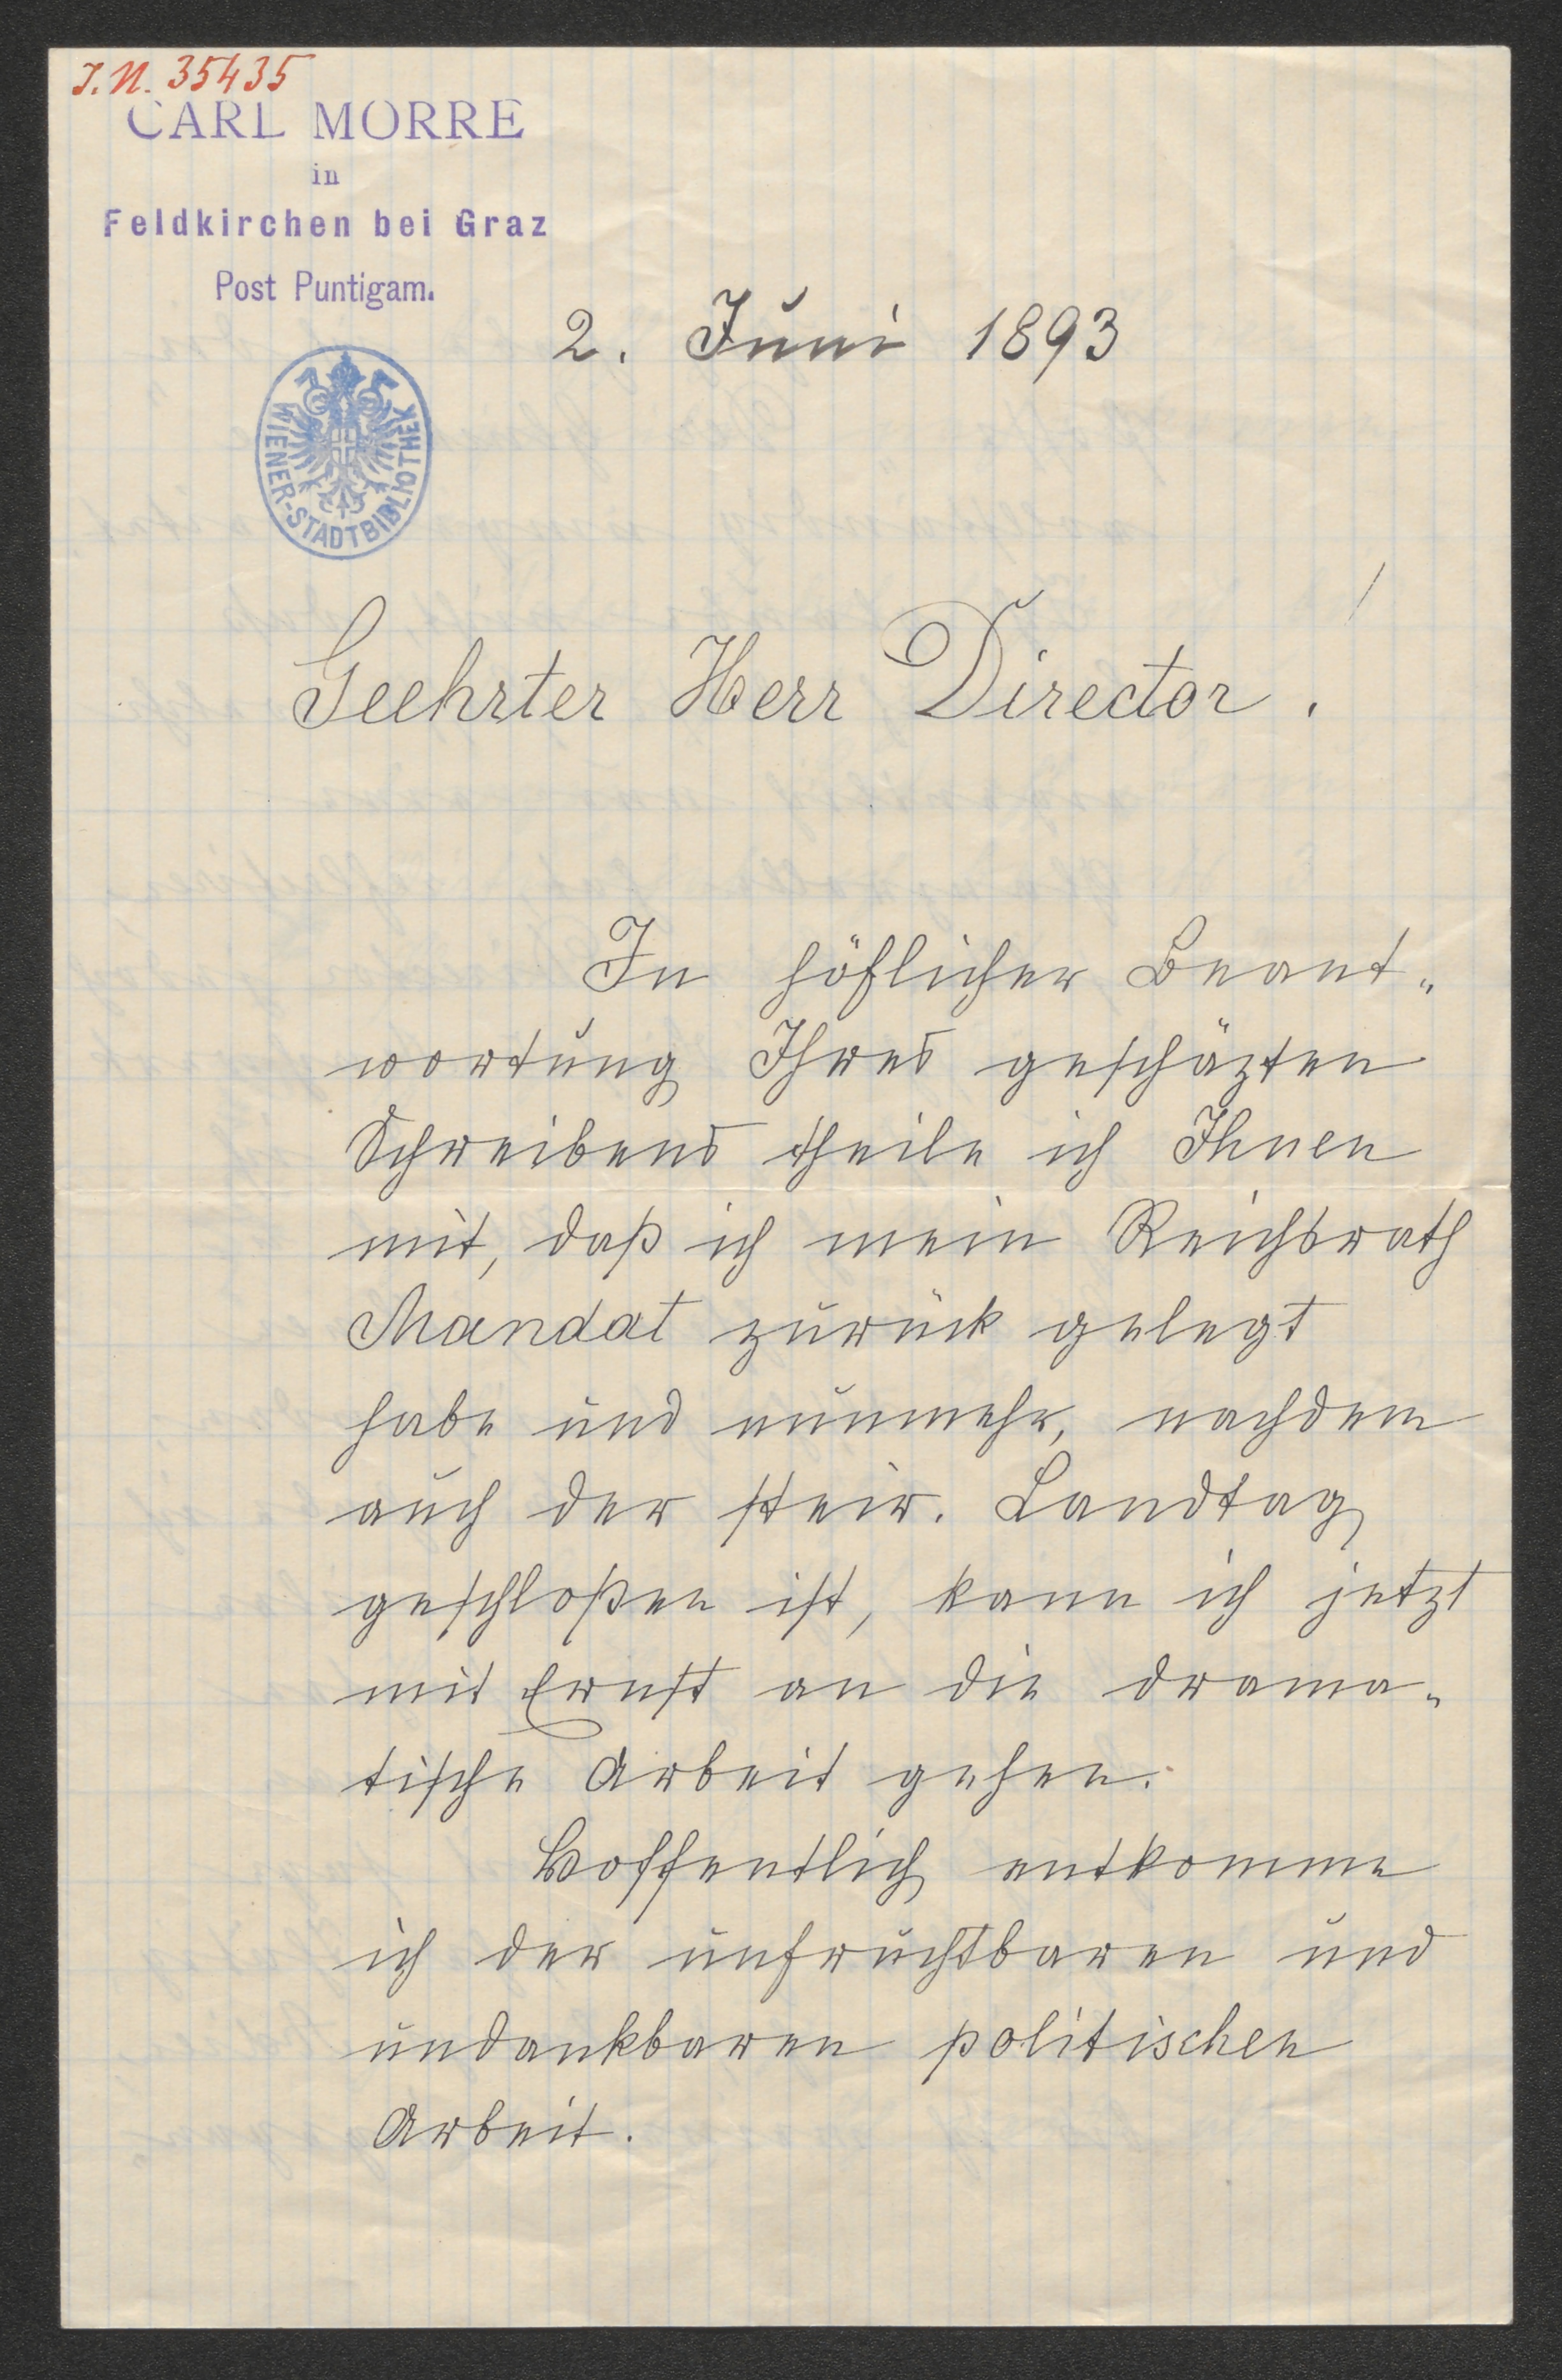 J. N. 35435
CARL MORRE
in
Feldkirchen bei Graz
Post Puntigam.
2. Juni 1893
WIENER-STADTBIBLIOTHEK
Geehrter Herr Director!
In höflicher Beant„
wortung Ihres geschäzten
Schreibens theile ich Ihnen
mit, daß ich mein Reichsrath
Mandat zurück gelegt
habe und nunmehr, nachdem
auch der steir. Landtag
geschloßen ist, kann ich jetzt
mit Ernst an die drama„
tische Arbeit gehen.
Hoffentlich entkomme
ich der unfruchtbaren und
undankbaren politischen
Arbeit.